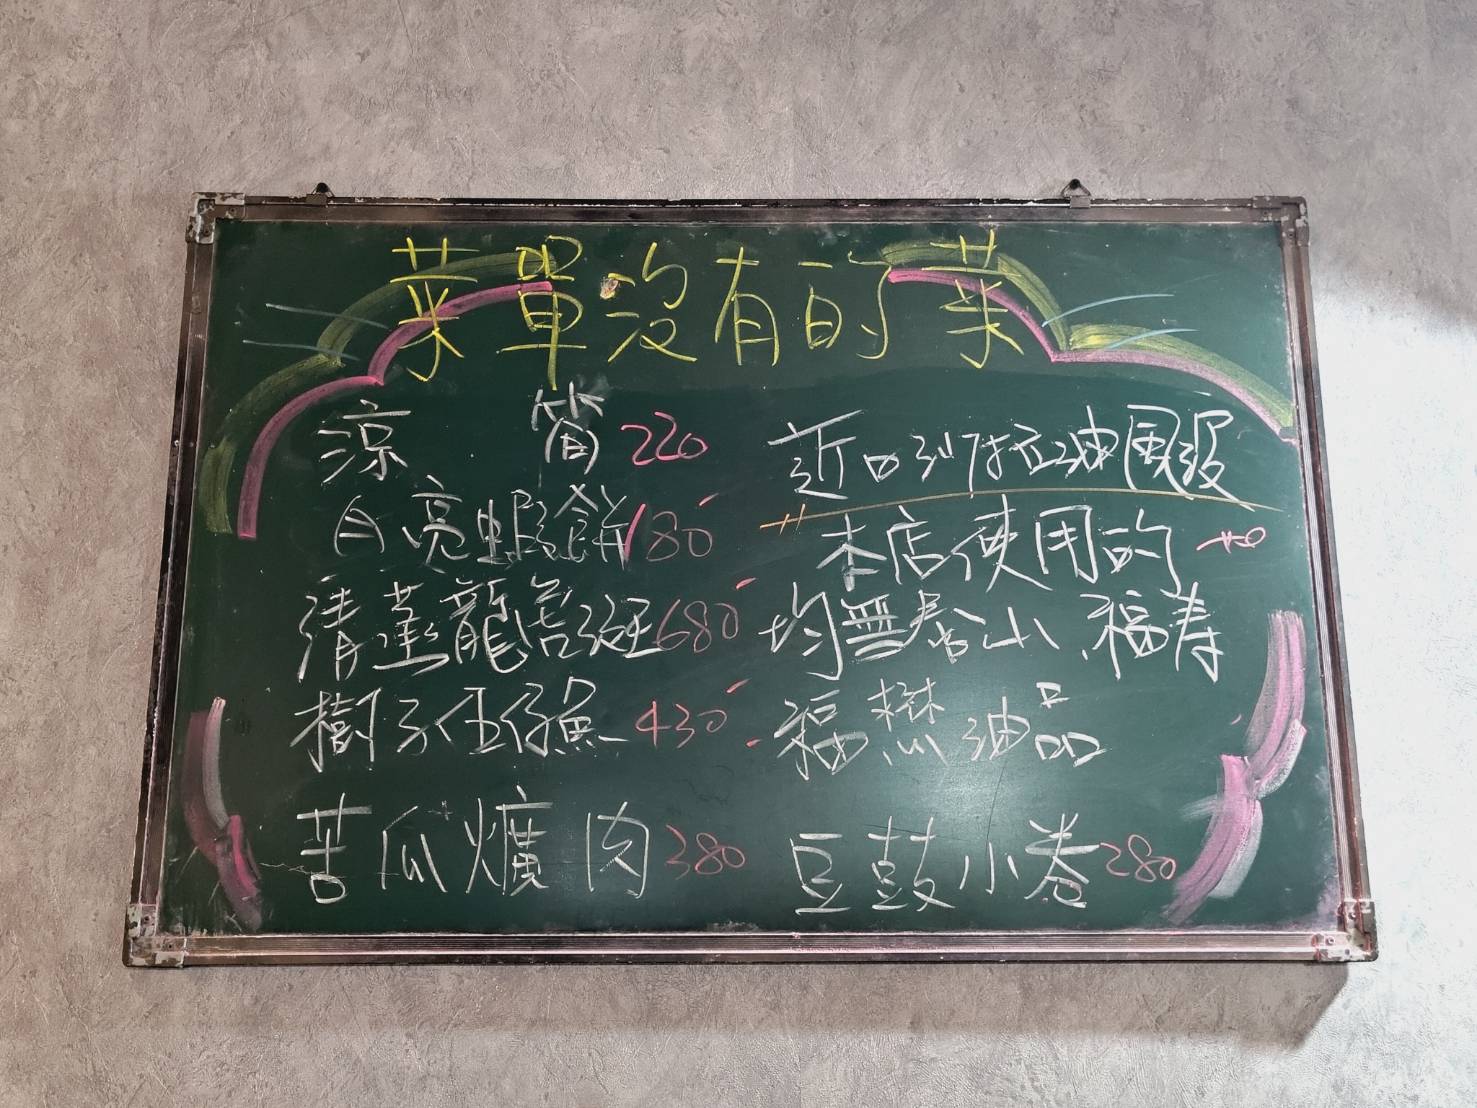 菜單沒有的菜
涼筍 220
月亮蝦餅 180
清蒸龍虎斑 680
樹子伍仔魚 430
苦瓜爌肉 380
近日沙拉油風波
本店使用的
均無泰山、福寿
福懋油品
豆鼓小卷 280